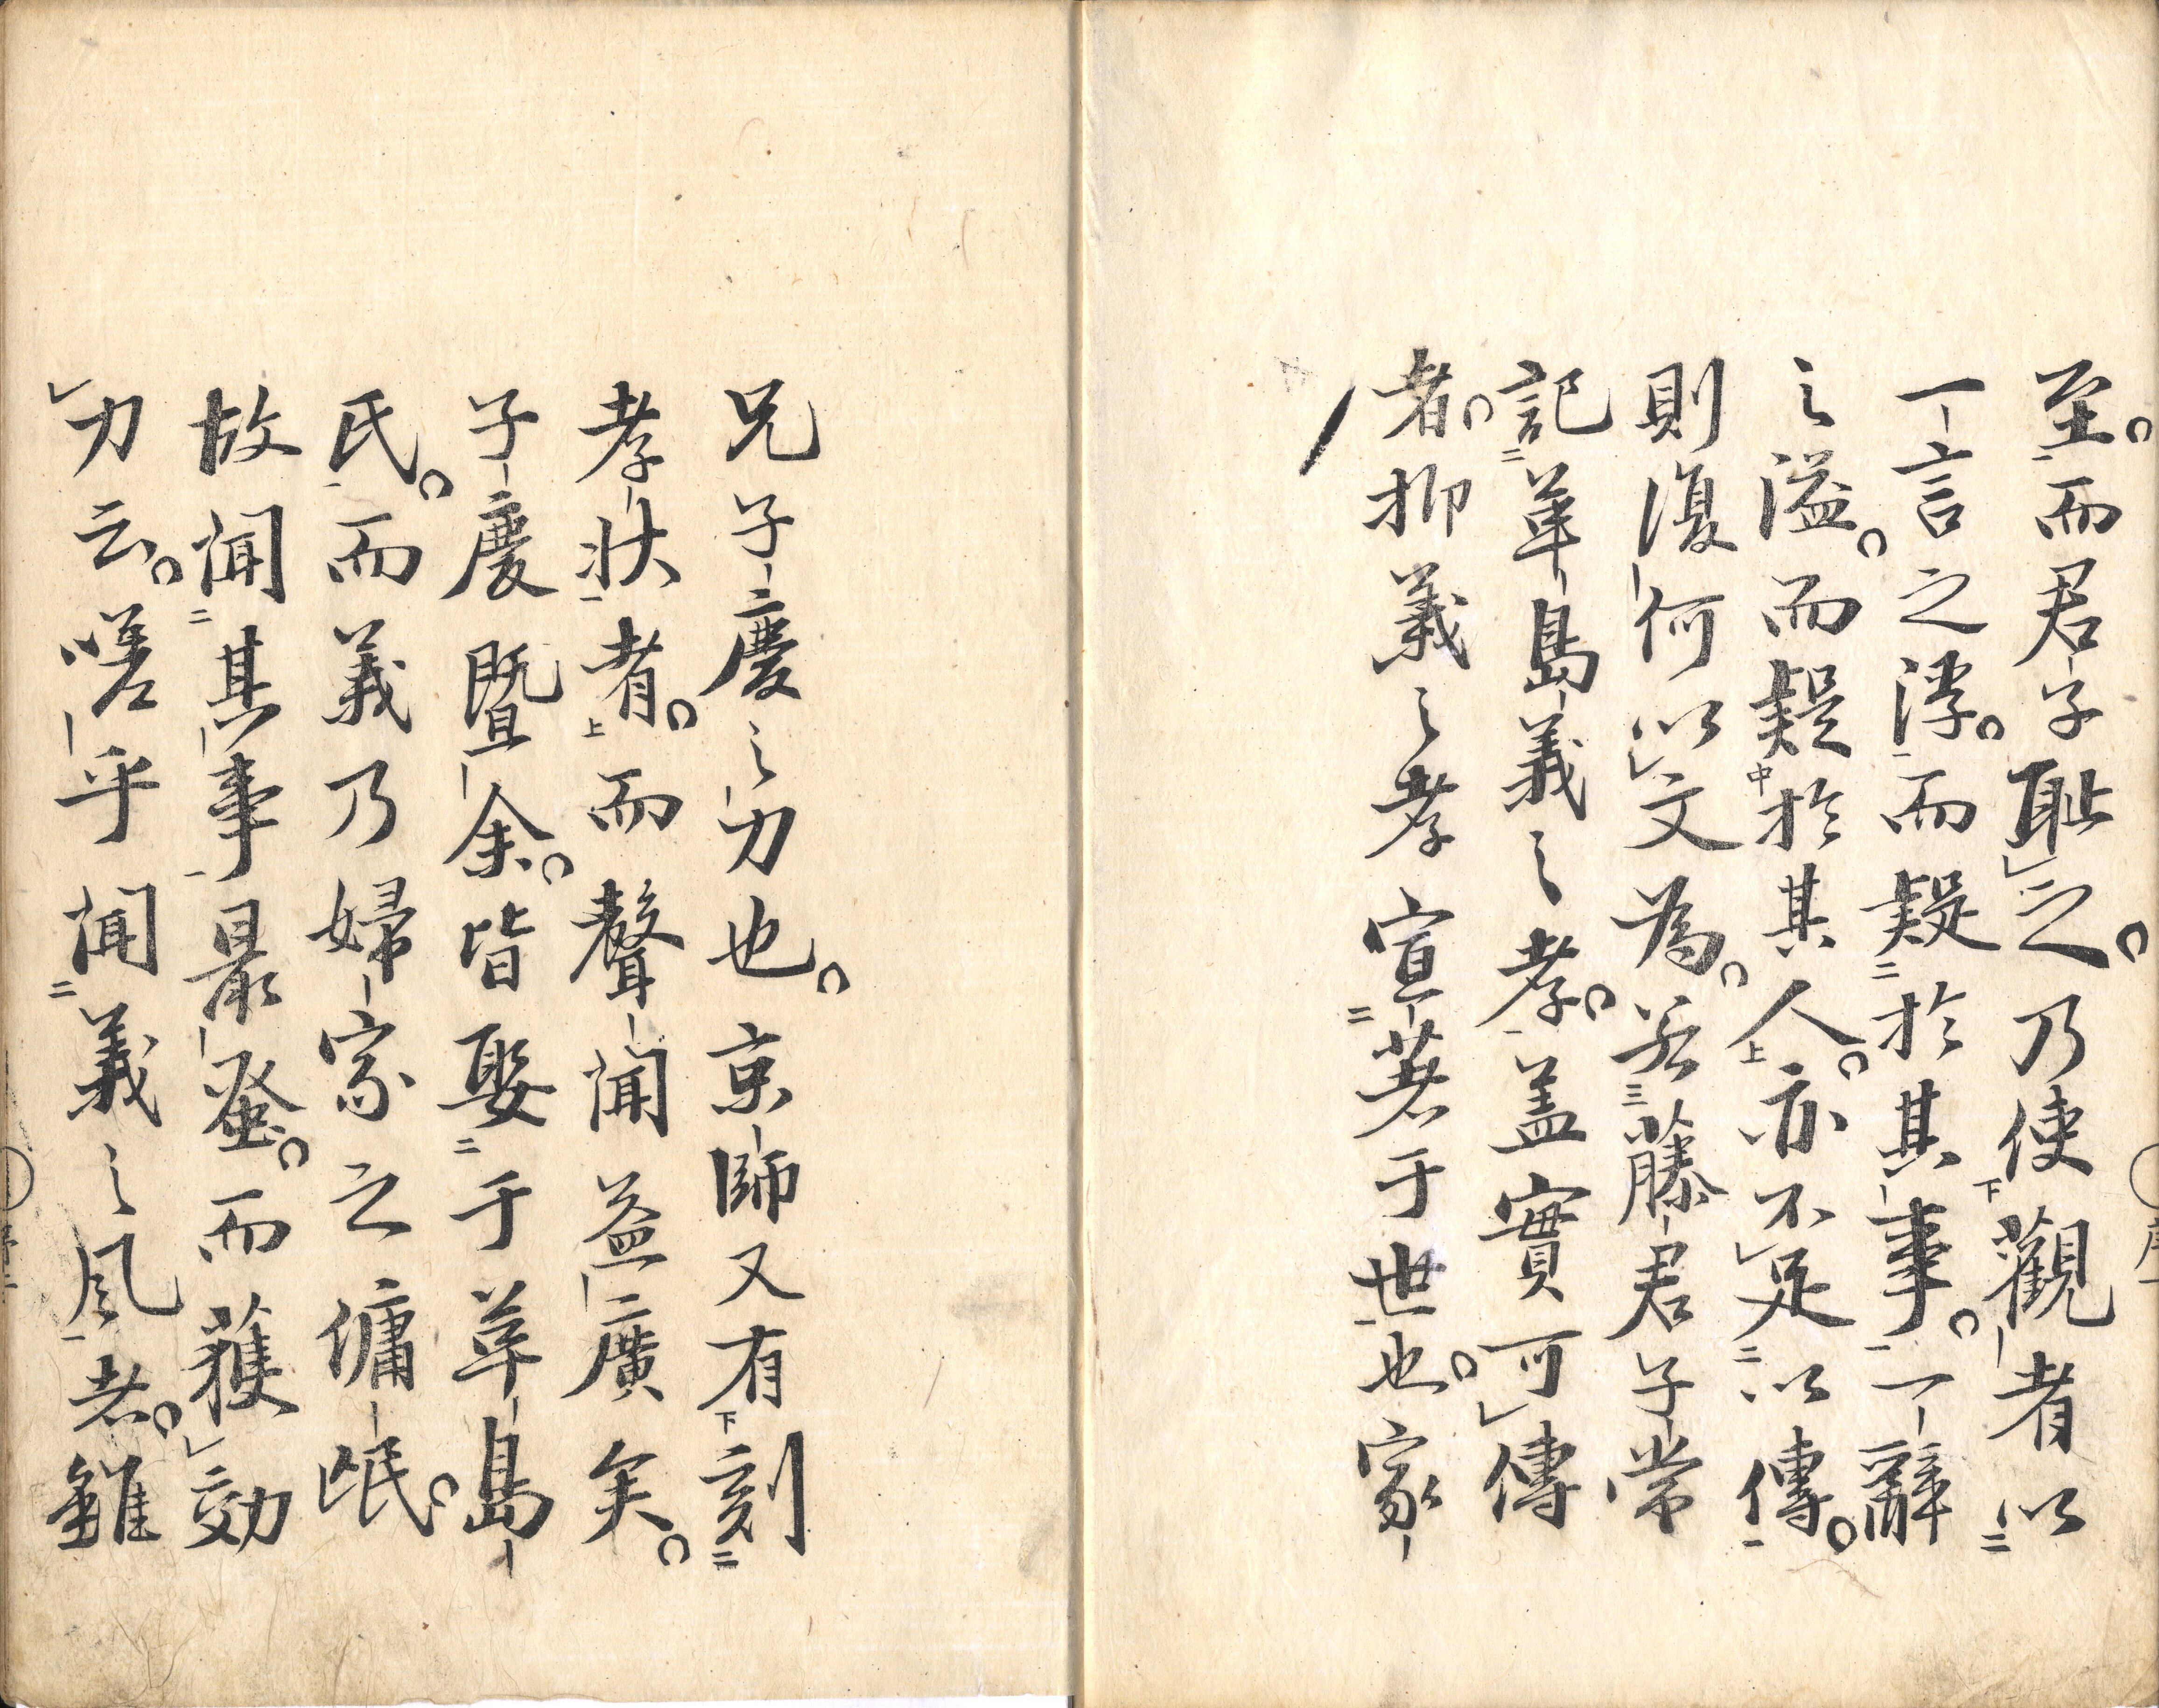 至。而君子恥之。乃使觀者以
一言之浮。而疑於其事。一辭
之溢。而疑於其人。亦不足以傳。
則復何以文爲。若藤君子常
記草島義之孝。蓋實可傳
者。抑義之孝宣著于世也。家
兄子慶之力也。京師又有刻
孝狀者。而聲聞益廣矣。
子慶暨余。皆娶于草島
氏。而義乃婦家之傭氓。
故聞其事最蚤。而獲効
力云。嗟乎聞義之風者。雖